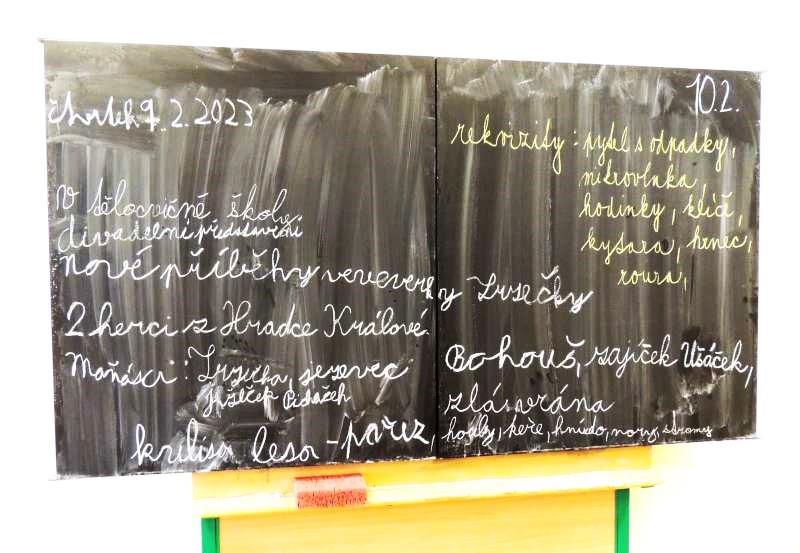 čtvrtek 9.2.2023
v tělocvičně školy
divadelní představení
nové příběhy veverky Zrzečky
2 herci z Hradce Králové.
Maňásci: Zrzečka, jezevec Bohouš, zajíček Ušáček,
ježeček Picháček
zlá vrána
kulisa lesa - pařez, houby, keře, hnízdo, nory, stromy
10.2.
rekvizity: pytel s odpadky,
mikrovlnka,
hodinky, klíč,
kytara, hrnec,
roura,